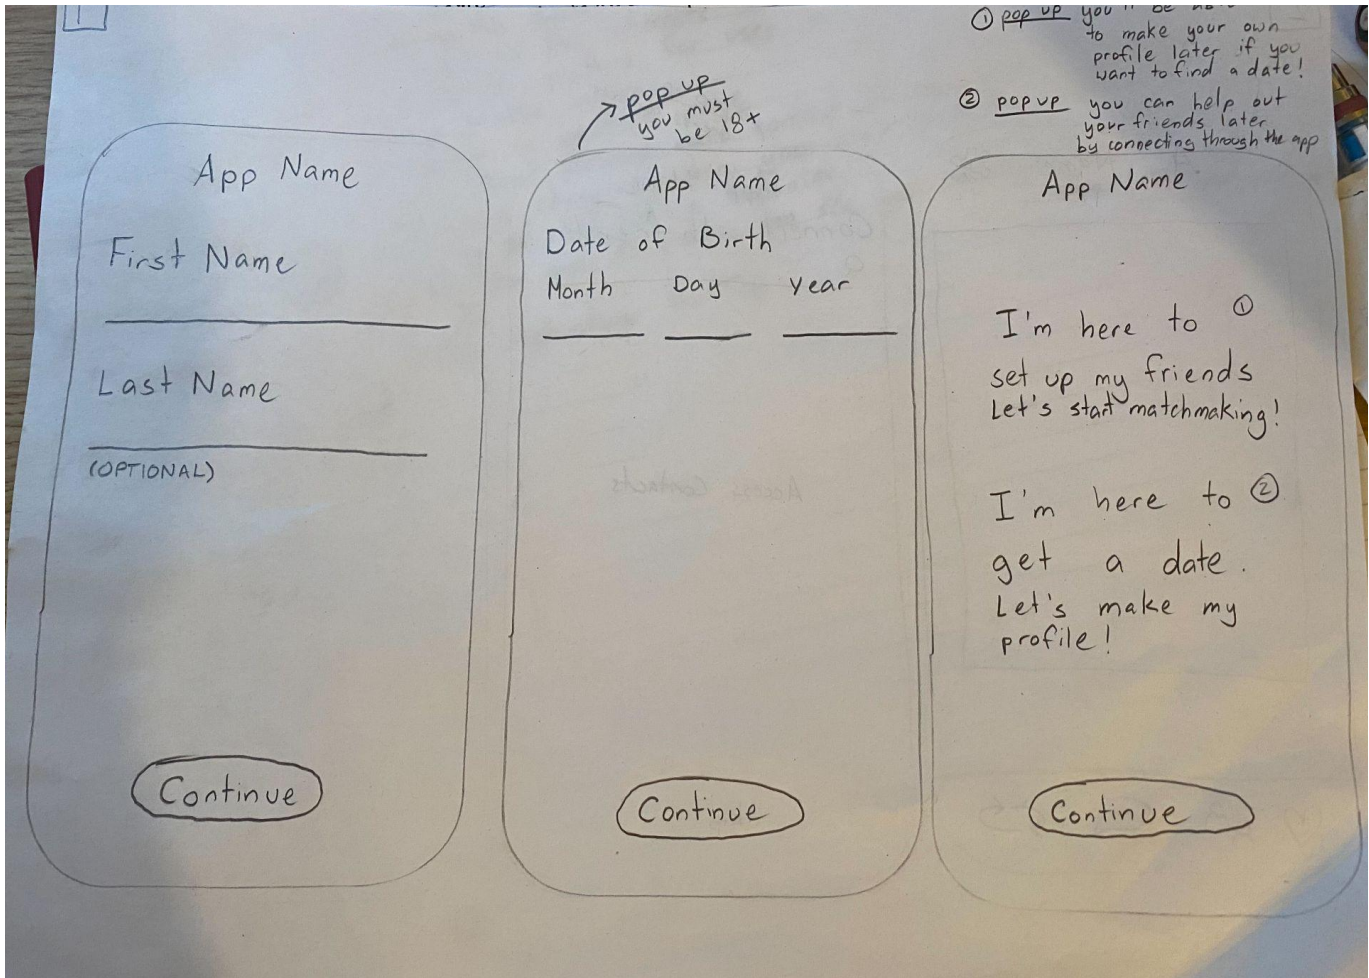 ① pop up you'll be
to make your own
profile later if you
want to find a date!
② pop up you can help out
your friends later
by connecting through the app
pop up
you must
be 18+
App Name
First Name
Last Name
(OPTIONAL)
Continue
App Name
Date of Birth
Month Day Year
Continue
App Name
I'm here to ①
set up my friends
Let's start matchmaking!
I'm here to ②
get a date.
Let's make my
profile!
Continue
Access Contacts